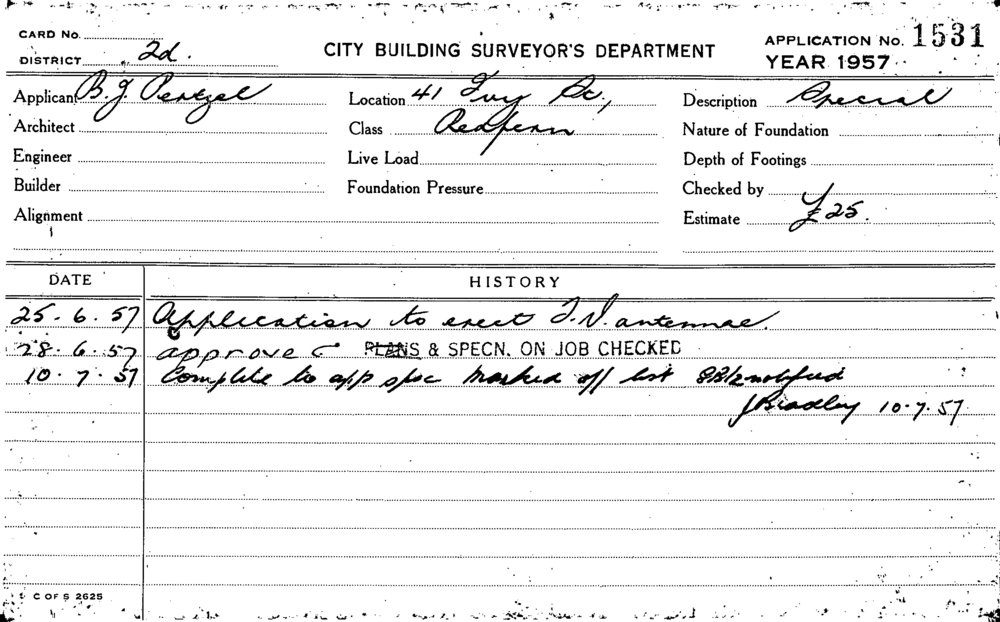 CARD No.
DISTRICT 2d.
CITY BUILDING SURVEYOR'S DEPARTMENT
APPLICATION No. 1531
YEAR 1957
Applicant B. J. Pentzel Location 41 Ivy St, Description Special
Architect Class Redfern Nature of Foundation
Engineer Live Load Depth of Footings
Builder Foundation Pressure Checked by
Alignment Estimate £25.
DATE HISTORY
25. 6. 57 Application to erect T.V. antennae.
28. 6. 57 approved PLANS & SPECN. ON JOB CHECKED
10. 7. 57 Complete to app spec marked off list notified
J Bradley 10.7.57
C OF S 2625